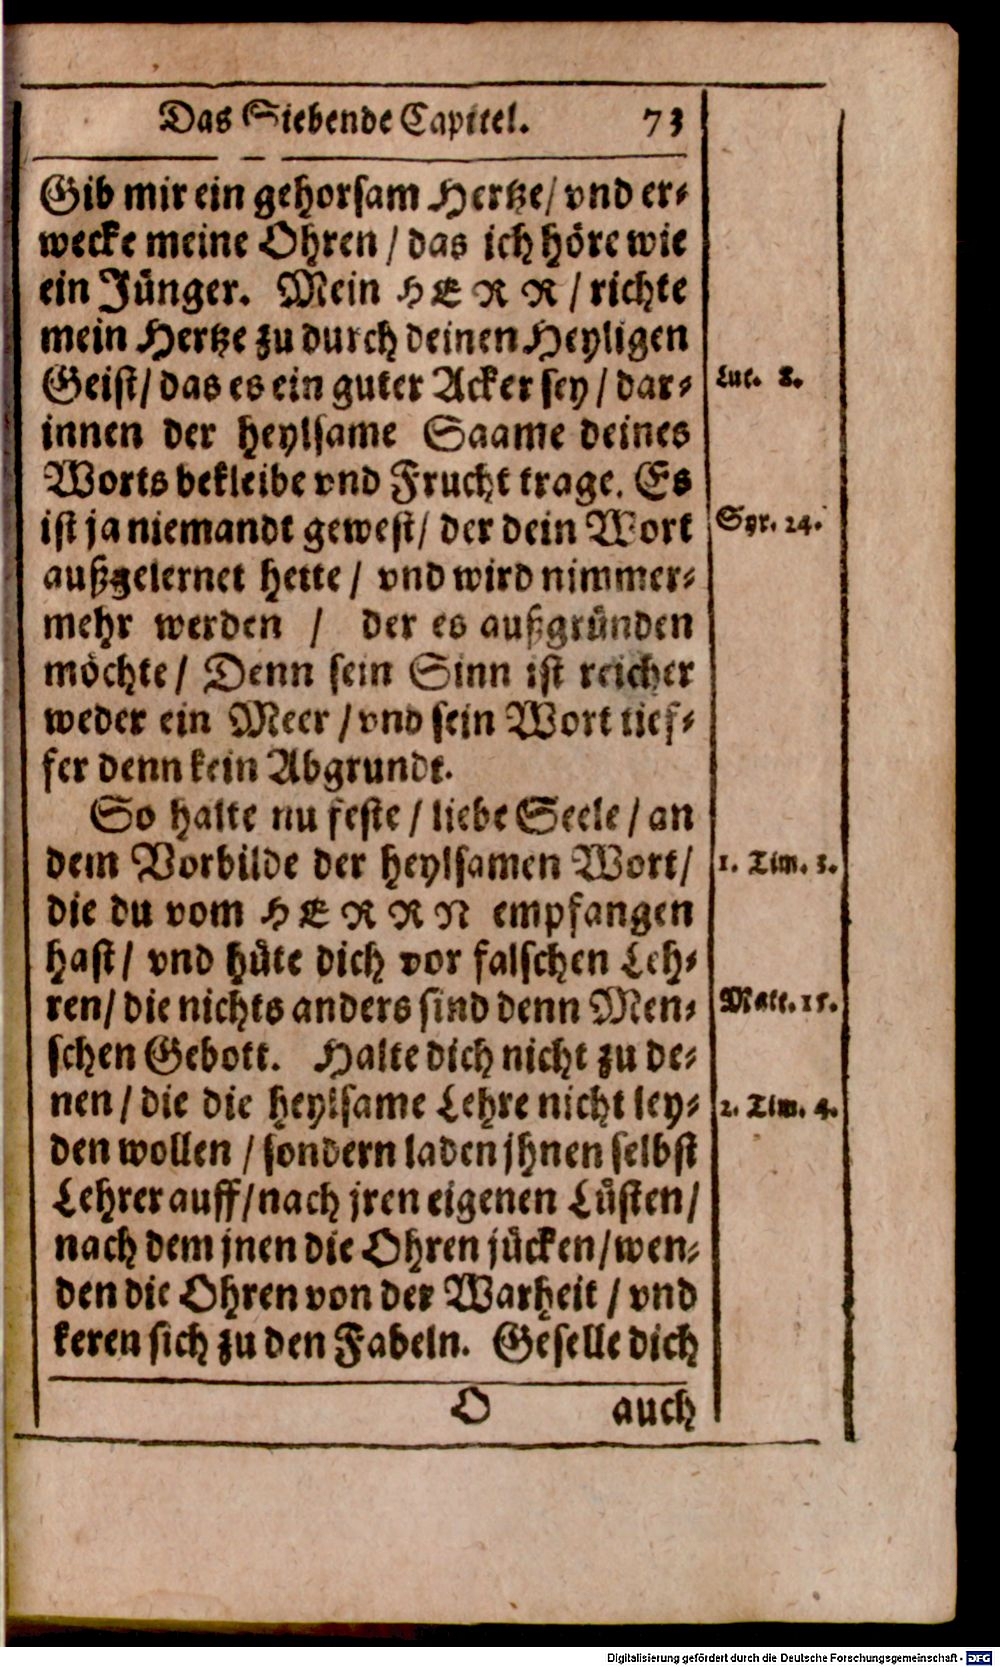 Das Siebende Capitel. 73
Gib mir ein gehorsam Hertze/ vnd er-
wecke meine Ohren / das ich höre wie
ein Jünger. Mein HERR / richte
mein Hertze zu durch deinen Heyligen
Geist/ das es ein guter Acker sey / dar-
Luc. 8.
innen der heylsame Saame deines
Worts bekleibe vnd Frucht trage. Es
ist ja niemandt gewest/ der dein Wort
Syr. 24.
außgelernet hette / vnd wird nimmer-
mehr werden / der es außgründen
möchte / Denn sein Sinn ist reicher
weder ein Meer / vnd sein Wort tief-
fer denn kein Abgrundt.
So halte nu feste / liebe Seele / an
dem Vorbilde der heylsamen Wort/
1. Tim. 3.
die du vom HERRN empfangen
hast/ vnd hüte dich vor falschen Leh-
ren/ die nichts anders sind denn Men-
Matt. 15.
schen Gebott. Halte dich nicht zu de-
nen / die die heylsame Lehre nicht ley-
2. Tim. 4.
den wollen / sondern laden jhnen selbst
Lehrer auff/ nach jren eigenen Lüsten/
nach dem jnen die Ohren jücken/ wen-
den die Ohren von der Warheit / vnd
keren sich zu den Fabeln. Geselle dich
O auch
Digitalisierung gefördert durch die Deutsche Forschungsgemeinschaft - DFG